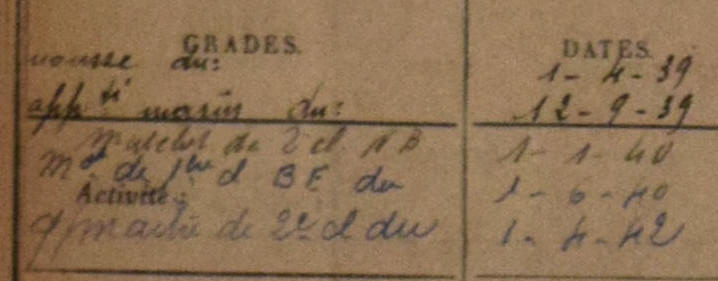 GRADES. DATES.
mousse du: 1-4-39
appti marin du: 12-9-39
Matelot de 2 cl NB 1-1-40
Mot de 1ère cl BE du 1-6-40
Activité:
q/maitre de 2e cl du 1-4-42